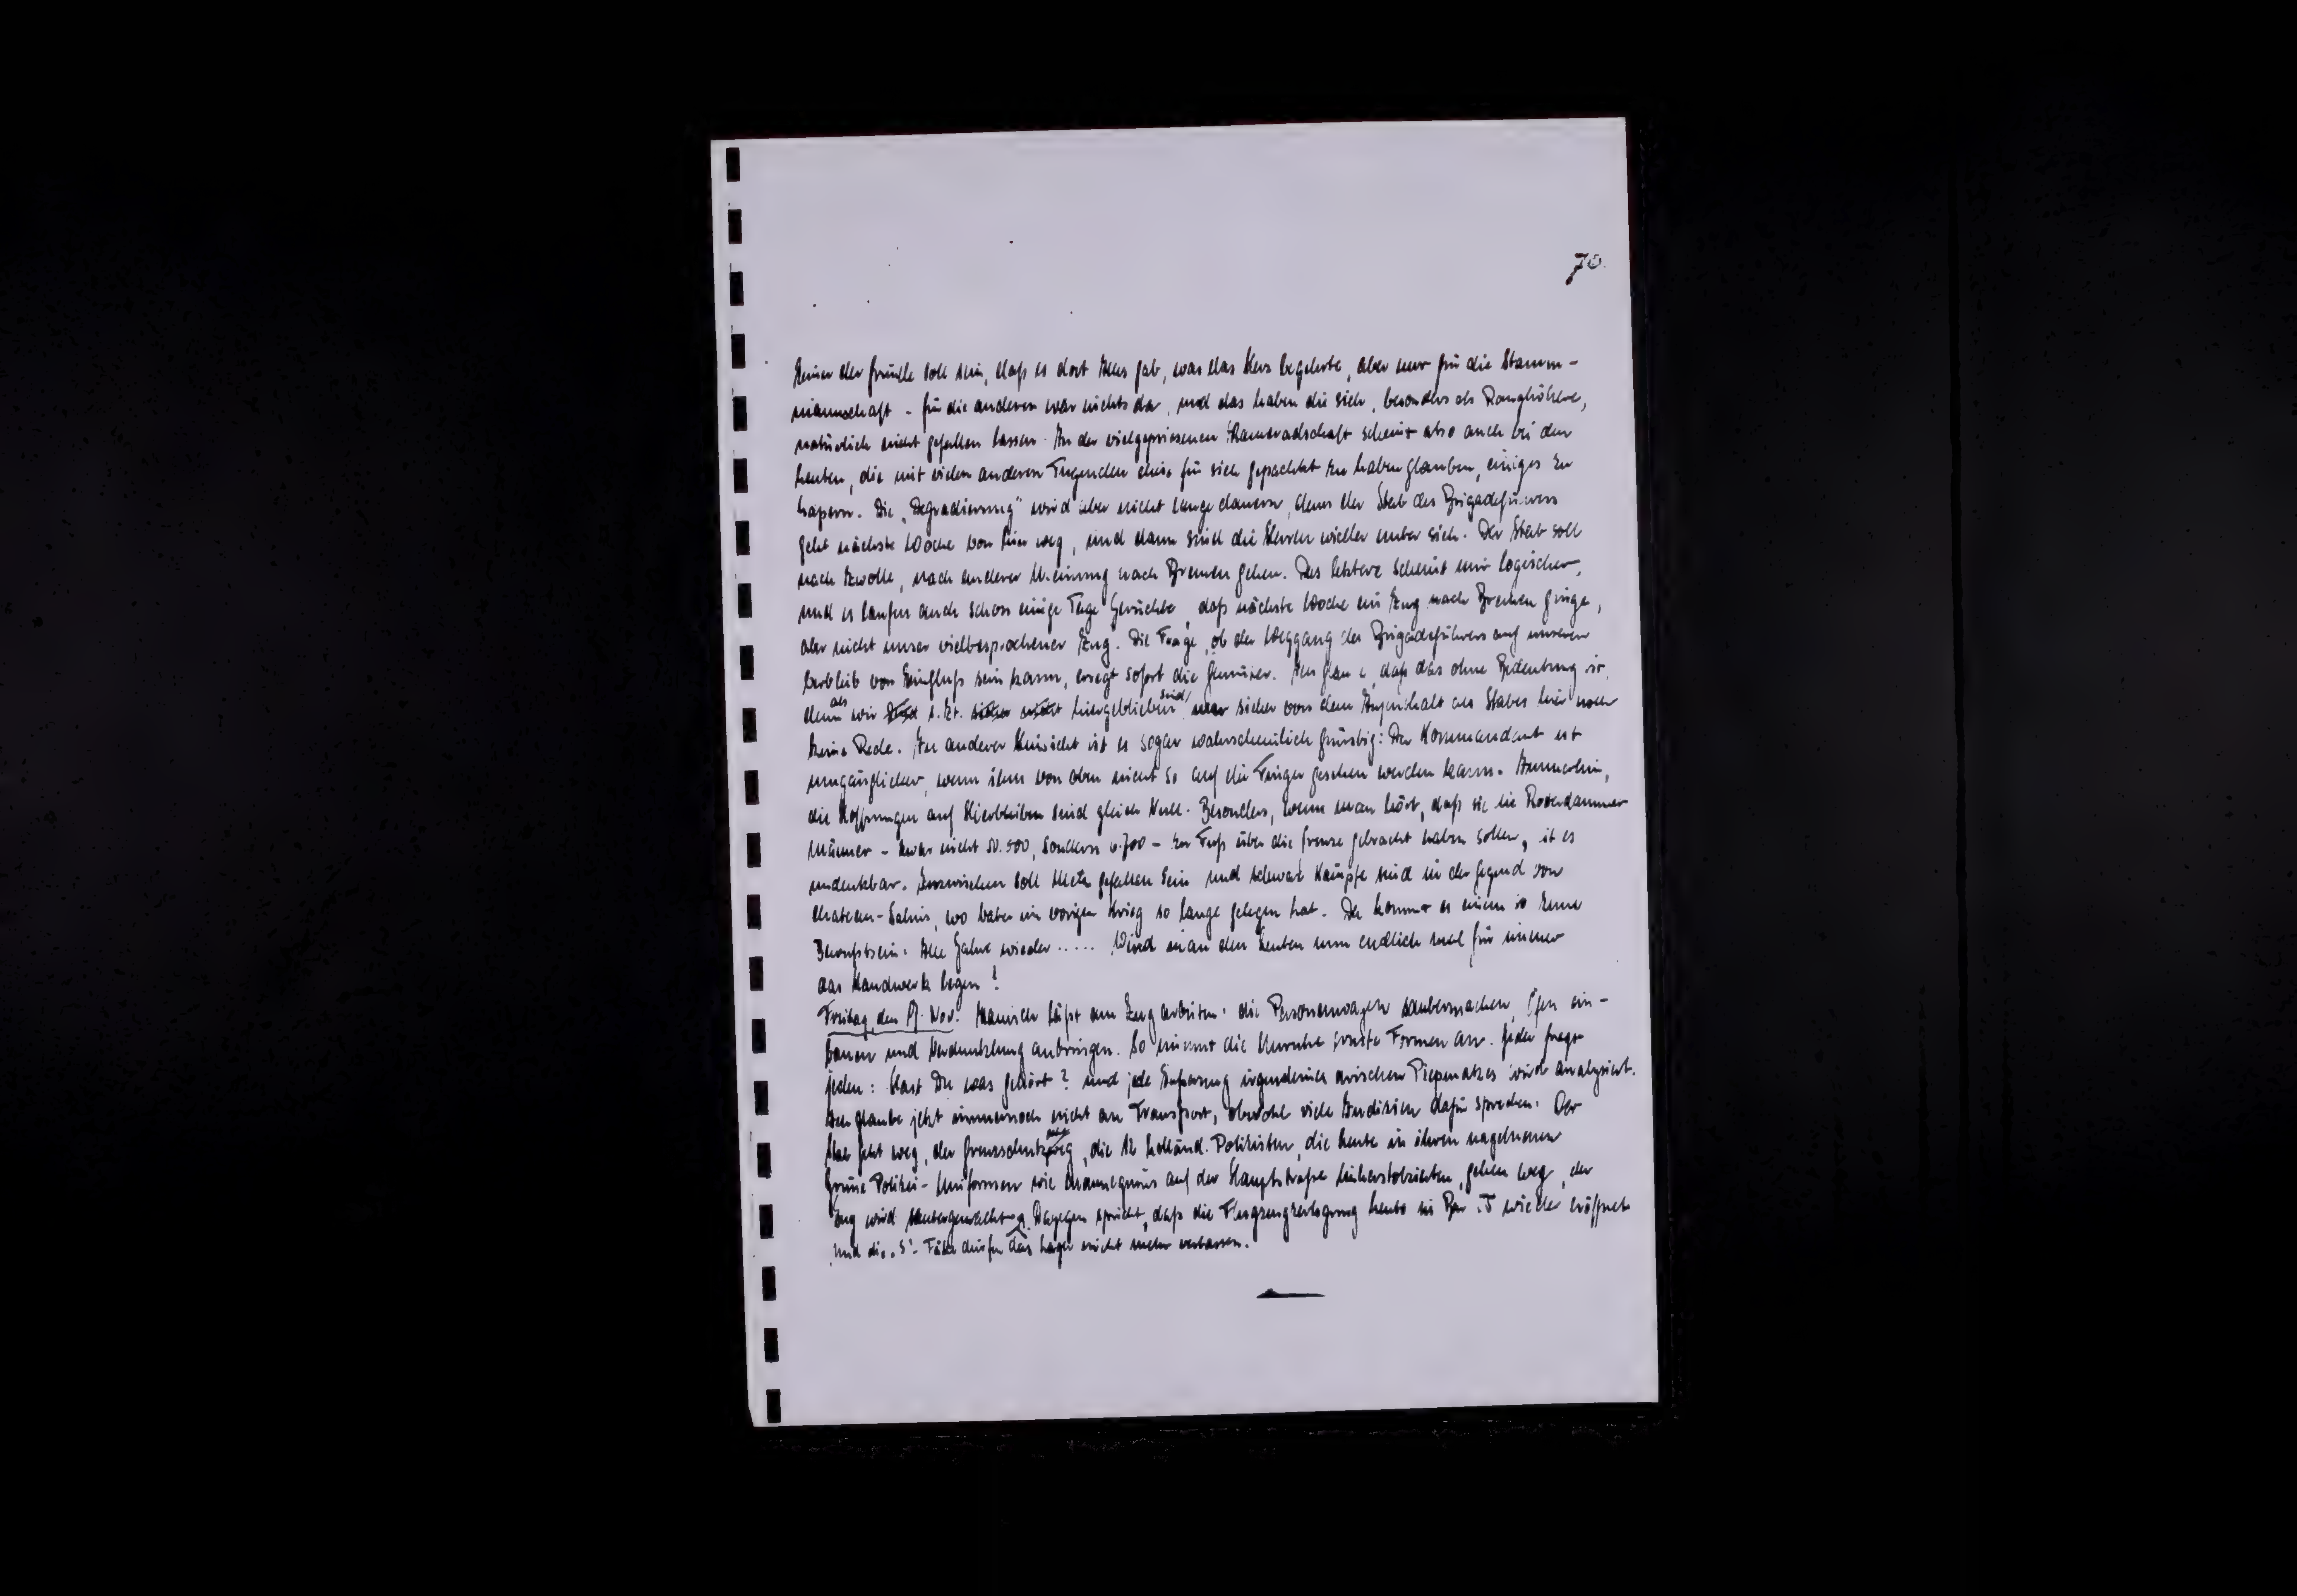 70.
Keiner der Gründe soll sein, daß es dort Alles gab, was das Herz begehrte, aber nur für die Stamm-
mannschaft - für die anderen war nichts da, und das haben die sich, besonders als Ranghöhere,
natürlich nicht gefallen lassen. An der vielgepriesenen Kameradschaft scheint also auch bei den
Leuten, die mit vielen anderen Tugenden diese für sich gepachtet zu haben glauben, einiges zu
hapern. Die „Degradierung" wird aber nicht lange dauern, denn der Stab des Brigadeführers
geht nächste Woche von hier weg, und dann sind die Herren wieder unter sich. Der Stab soll
nach Zwolle, nach anderer Meinung nach Bremen gehen. Das letztere scheint mir logischer,
und es laufen auch schon einige Tage Gerüchte, daß nächste Woche ein Zug nach Bremen ginge,
aber nicht unser vielbesprochener Zug. Die Frage, ob der Weggang des Brigadeführers auf unseren
Verbleib von Einfluß sein kann, erregt sofort die Gemüter. Ich glaube, daß das ohne Bedeutung ist,
denn als wir s. Zt. hiergeblieben sind, war sicher von dem Aufenthalt des Stabes hier noch
keine Rede. In anderer Hinsicht ist es sogar wahrscheinlich günstig: Der Kommandant ist
umgänglicher, wenn ihm von oben nicht so auf die Finger gesehen werden kann. Immerhin,
die Hoffnungen auf Hierbleiben sind gleich Null. Besonders, wenn man hört, daß sie die Rotterdammer
Männer - zwar nicht 50.500, sondern 6.700 - zu Fuß über die Grenze gebracht haben sollen, ist es
undenkbar. Inzwischen soll Metz gefallen sein und schwere Kämpfe sind in der Gegend von
Chateau-Salins, wo Vater im vorigen Krieg so lange gelegen hat. Da kommt es einem so zum
Bewußtsein: Alle Jahre wieder ..... Wird man den Leuten nun endlich mal für immer
das Handwerk legen?
Freitag, den 17. Nov. Hanisch läßt am Zug arbeiten: die Personenwagen saubermachen, Öfen ein-
bauen und Verdunklung anbringen. So nimmt die Unruhe ernste Formen an. Jeder fragt
jeden: Hast Du was gehört? und jede Äußerung irgendeines arischen Piepmatzes wird analysiert.
Ich glaube jetzt immernoch nicht an Transport, obwohl viele Indizien dafür sprechen: Der
Stab geht weg, der Grenzschutz weg, die 12 holländ. Polizisten, die heute in ihren nagelneuen
Grüne Polizei-Uniformen wie Mannequins auf der Hauptstraße umherstolzierten, gehen weg, der
Zug wird saubergemacht. Dagegen spricht, daß die Flugzeugzerlegung heute in Bar. wieder eröffnet
und die „S"-Fälle dürfen das Lager nicht mehr verlassen.